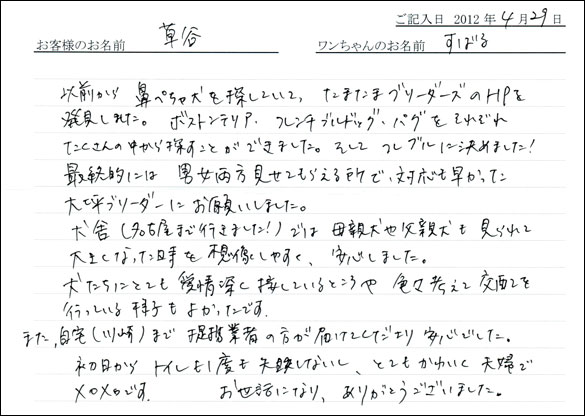 ご記入日 2012年4月29日
お客様のお名前 草谷 ワンちゃんのお名前 すばる
以前から鼻ぺちゃ犬を探していて、たまたまブリーダーズのHPを
発見しました。ボストンテリア・フレンチブルドッグ・パグをそれぞれ
たくさんの中から探すことができました。そしてフレブルに決めました!
最終的には男女両方見せてもらえる所で、対応も早かった
大坪ブリーダーにお願いしました。
犬舎(名古屋まで行きました!)では母親犬や父親犬も見られて
大きくなった時を想像しやすく、安心しました。
犬たちにとても愛情深く接しているところや色々考えて交配を
行っている様子もよかったです。
また、自宅(川崎)まで提携業者の方が届けてくださり安心でした。
初日からトイレも1度も失敗しないし、とてもかわいく夫婦で
メロメロです。 お世話になり、ありがとうございました。